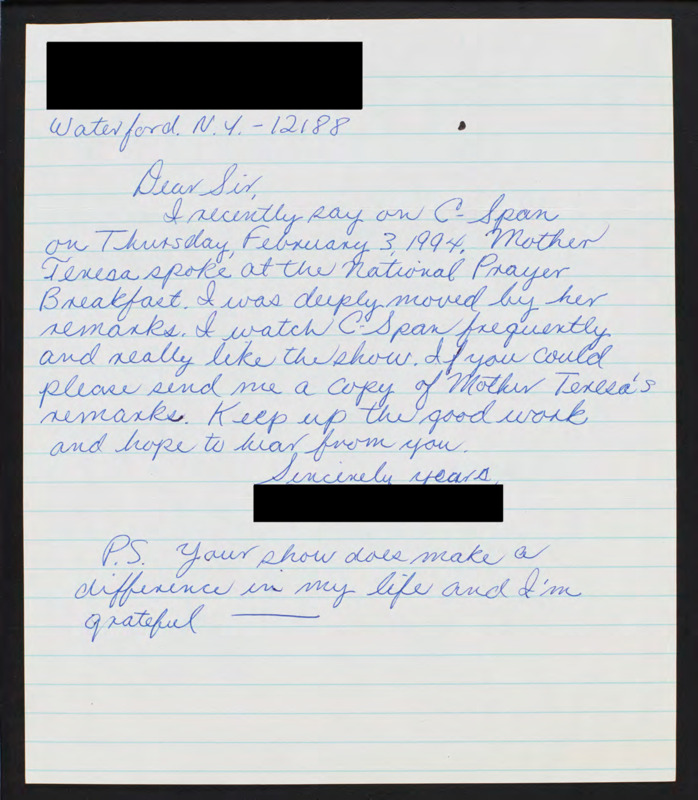 Waterford. N.Y. - 12188
Dear Sir,
I recently say on C-Span
on Thursday, February 3, 1994, Mother
Teresa spoke at the National Prayer
Breakfast. I was deeply moved by her
remarks. I watch C-Span frequently
and really like the show. If you could
please send me a copy of Mother Teresa's
remarks. Keep up the good work
and hope to hear from you.
Sincerely yours,
P.S. Your show does make a
difference in my life and I'm
grateful